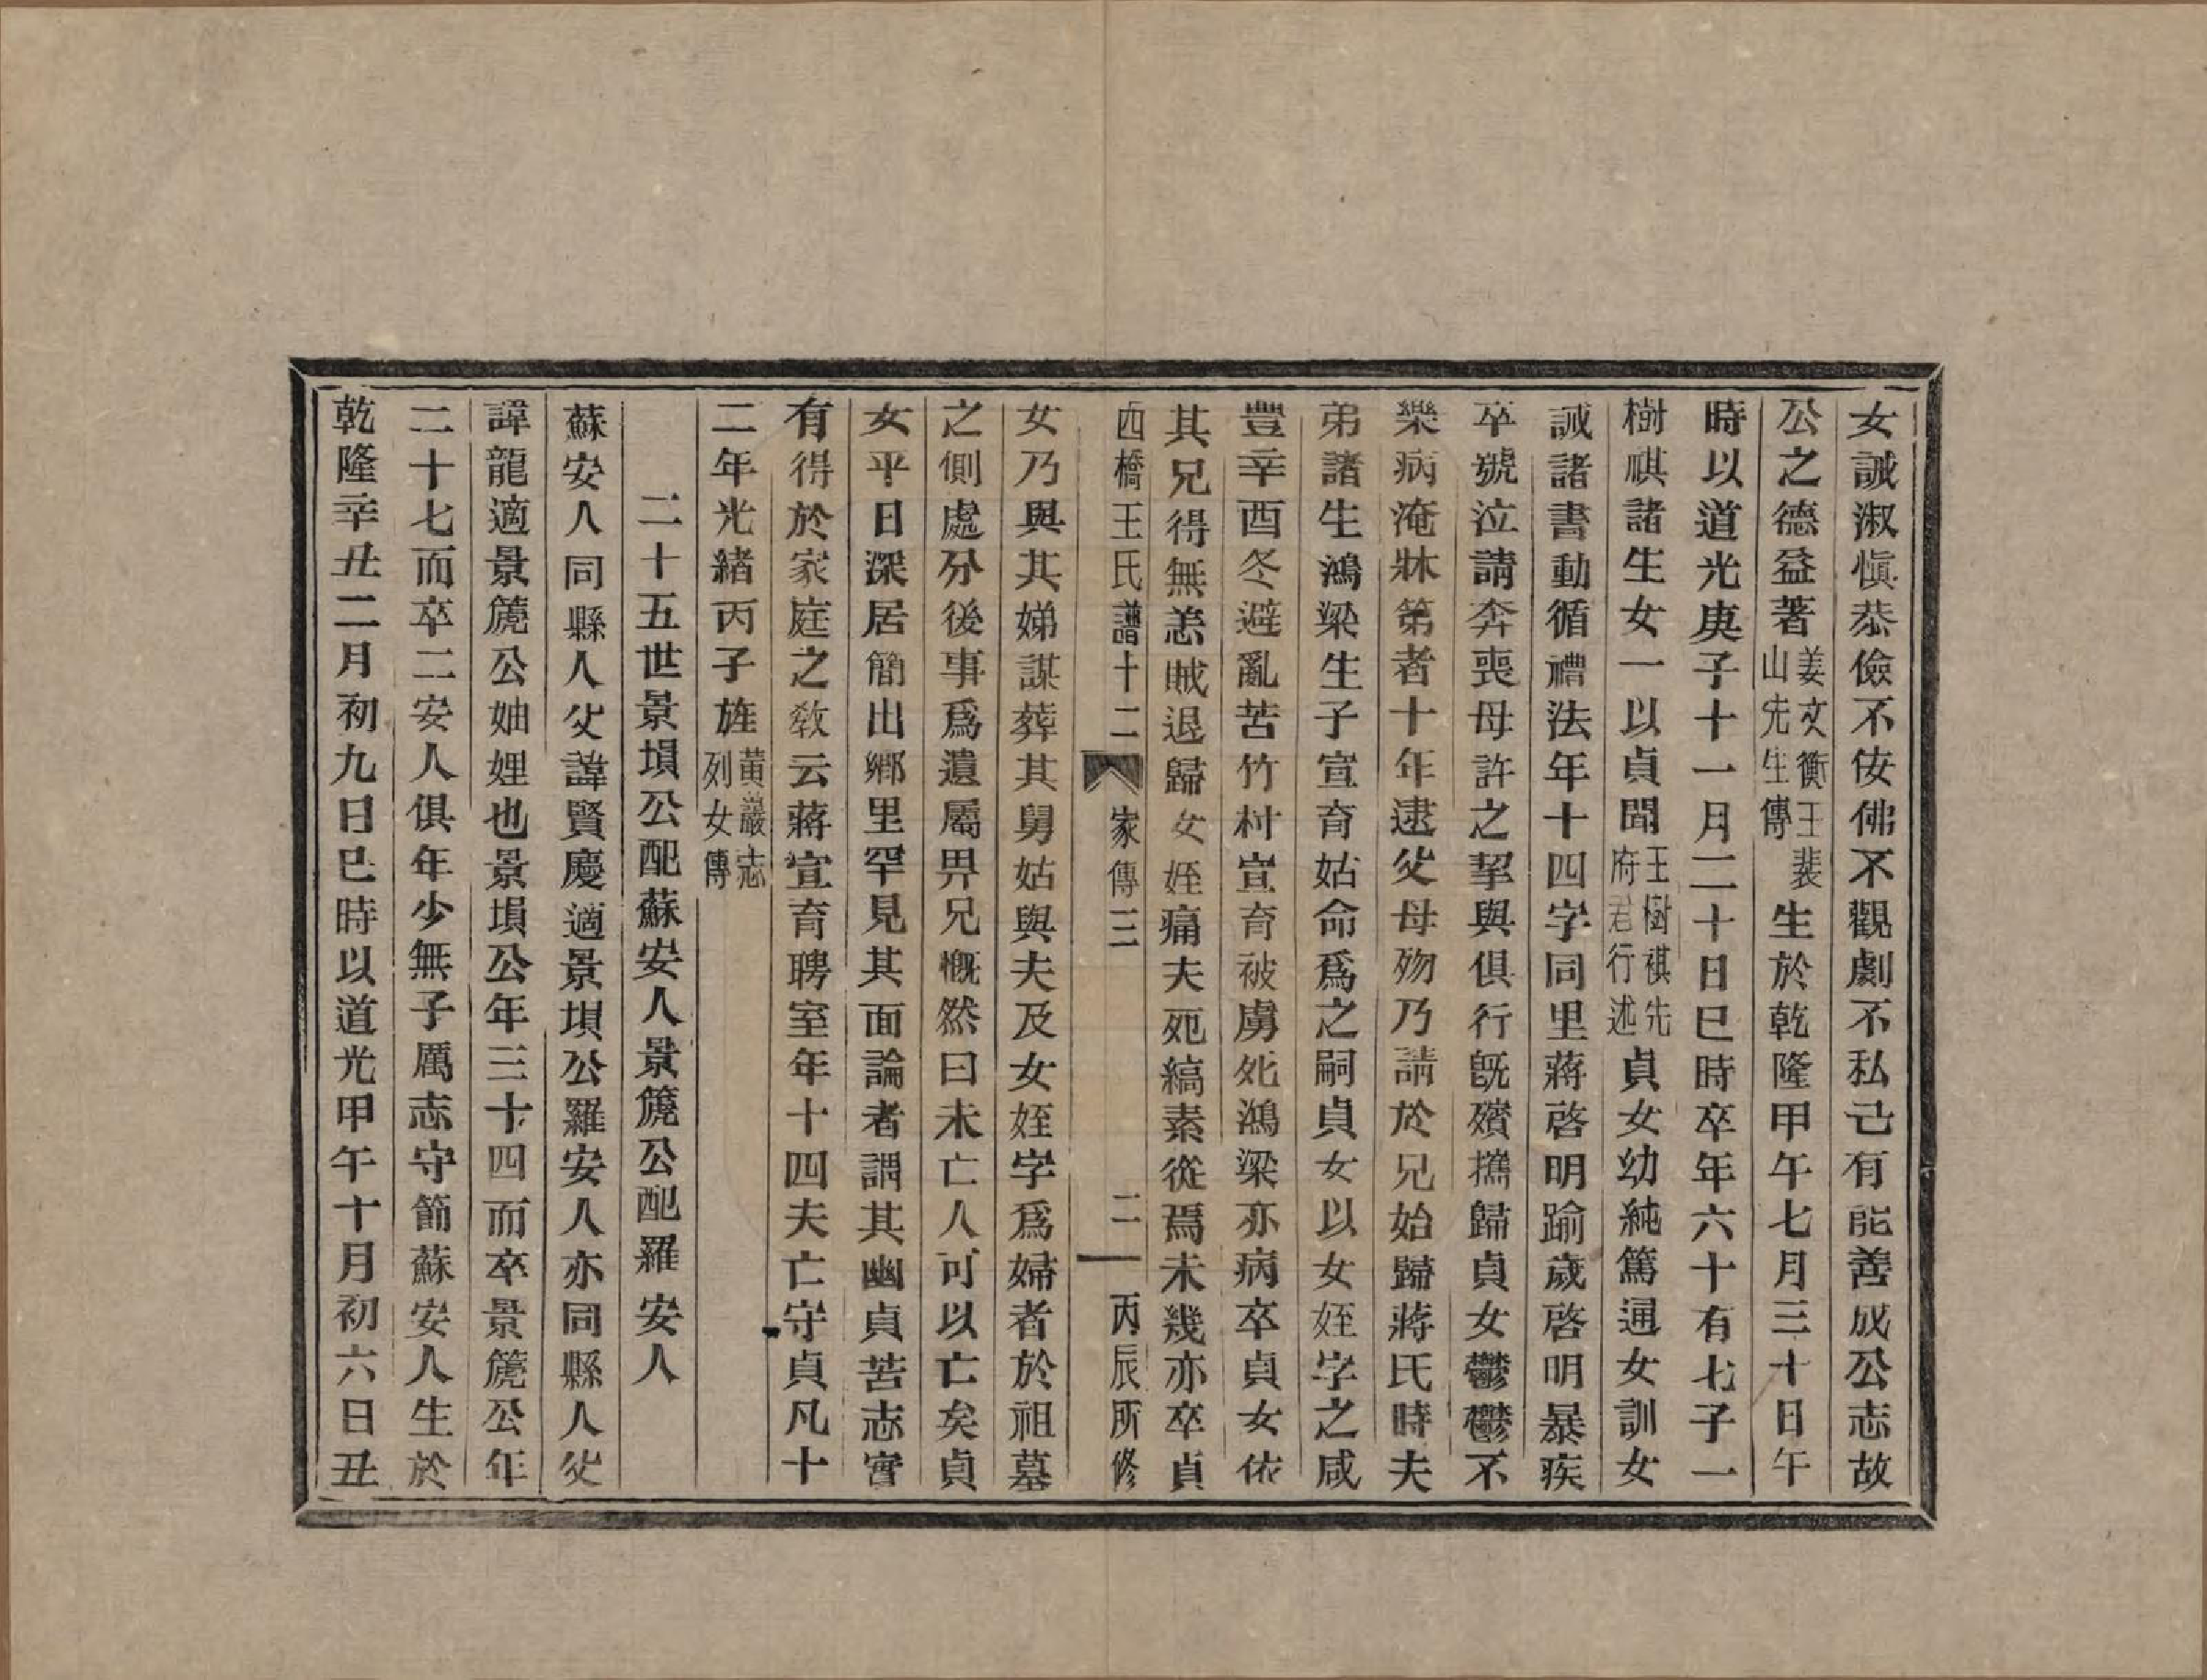 女誡淑愼恭儉不佞佛不觀劇不私己有能善成公志故
公之德益著姜文衡王裴山先生傳生於乾隆甲午七月三十日午
時以道光庚子十一月二十日巳時卒年六十有七子一
樹祺諸生女一以貞聞王樹祺先府君行述貞女幼純篤通女訓女
誡諸書動循禮法年十四字同里蔣啓明踰歲啓明暴疾
卒號泣請奔喪母許之挈與俱行旣殯攜歸貞女鬱鬱不
樂病淹牀笫者十年逮父母歿乃請於兄始歸蔣氏時夫
弟諸生鴻梁生子宣育姑命爲之嗣貞女以女姪字之咸
豐辛酉冬避亂苦竹村宣育被虜死鴻梁亦病卒貞女依
其兄得無恙賊退歸女姪痛夫死縞素從焉未幾亦卒貞
西橋王氏譜十二 家傳三 二 丙辰所修
女乃與其娣謀葬其舅姑與夫及女姪字爲婦者於祖墓
之側處分後事爲遺屬畀兄慨然曰未亡人可以亡矣貞
女平日深居簡出鄉里罕見其面論者謂其幽貞苦志實
有得於家庭之敎云蔣宣育聘室年十四夫亡守貞凡十
二年光緖丙子旌黃巖志列女傳
二十五世景塤公配蘇安人景篪公配羅安人
蘇安人同縣人父諱賢慶適景塤公羅安人亦同縣人父
諱龍適景篪公妯娌也景塤公年三十四而卒景篪公年
二十七而卒二安人俱年少無子厲志守節蘇安人生於
乾隆辛丑二月初九日巳時以道光甲午十月初六日丑